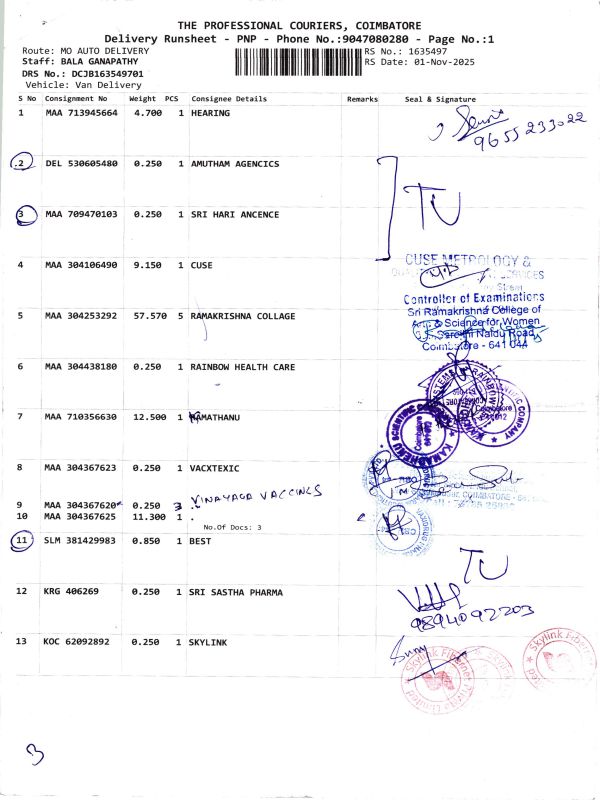 THE PROFESSIONAL COURIERS, COIMBATORE
Delivery Runsheet - PNP - Phone No.:9047080280 - Page No.:1
Route: MO AUTO DELIVERY RS No.: 1635497
Staff: BALA GANAPATHY RS Date: 01-Nov-2025
DRS No.: DCJB163549701
Vehicle: Van Delivery
S No Consignment No Weight PCS Consignee Details Remarks Seal & Signature
1 MAA 713945664 4.700 1 HEARING
9655233022
2 DEL 530605480 0.250 1 AMUTHAM AGENCICS
TU
3 MAA 709470103 0.250 1 SRI HARI ANCENCE
4 MAA 304106490 9.150 1 CUSE
CUSE METROLOGY &
Controller of Examinations
Sri Ramakrishna College of
Arts & Science for Women
Naidu Road
Coimbatore - 641 044
5 MAA 304253292 57.570 5 RAMAKRISHNA COLLAGE
6 MAA 304438180 0.250 1 RAINBOW HEALTH CARE
7 MAA 710356630 12.500 1 KAMATHANU
KAMADHENU SCIENTIFIC COMPANY
8 MAA 304367623 0.250 1 VACXTEXIC
9 MAA 304367620 0.250 3 VINAYAGA VACCINES
10 MAA 304367625 11.300 1 .
No.Of Docs: 3
11 SLM 381429983 0.850 1 BEST
TU
12 KRG 406269 0.250 1 SRI SASTHA PHARMA
9894092203
13 KOC 62092892 0.250 1 SKYLINK
Skylink Fibernet Private Limited
Skylink Fiber
3